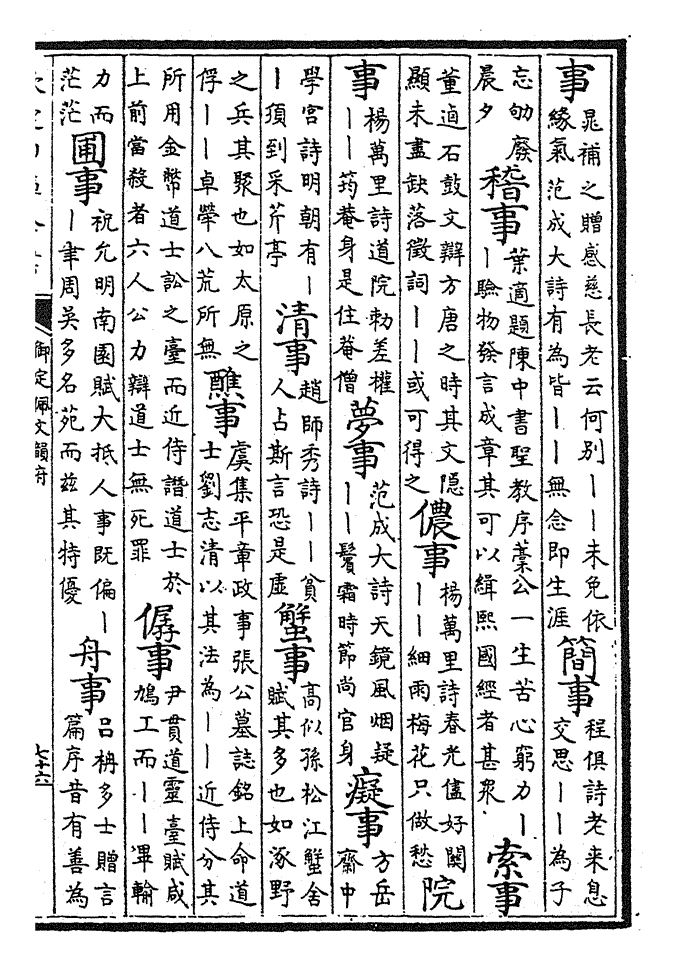 事
晁補之贈感慈長老云何別丨丨未免依
緣氣范成大詩有為皆丨丨無念即生涯
簡事
程俱詩老来息
交思丨丨為子
忘劬廢
晨夕
稽事
葉適題陳中書聖教序藁公一生苦心窮力丨
丨驗物發言成章其可以緝熙國經者甚衆
索事
董逌石鼓文辯方唐之時其文隱
顯未盡缺落徵詞丨丨或可得之
儂事
楊萬里詩春光儘好關
丨丨細雨梅花只做愁
院
事
楊萬里詩道院勅差權
丨丨筠菴身是住菴僧
夢事
范成大詩天鏡風烟疑
丨丨鬢霜時節尚官身
癡事
方岳
齋中
學宮詩明朝有丨
丨須到采芹亭
清事
趙師秀詩丨丨貧
人占斯言恐是虛
蟹事
高似孫松江蟹舍
賦其多也如涿野
之兵其聚也如太原之
俘丨丨卓犖八荒所無
醮事
虞集平章政事張公墓誌銘上命道
士劉志清以其法為丨丨近侍分其
所用金幣道士訟之臺而近侍譖道士於
上前當殺者六人公力辯道士無死罪
僝事
尹貫道靈臺賦咸
鳩工而丨丨畢輸
力而
茫茫
圃事
祝允明南園賦大抵人事既偏丨
丨聿周吳多名苑而茲其特優
舟事
吕柟多士贈言
篇序昔有善為
御定佩文韻府
七十六